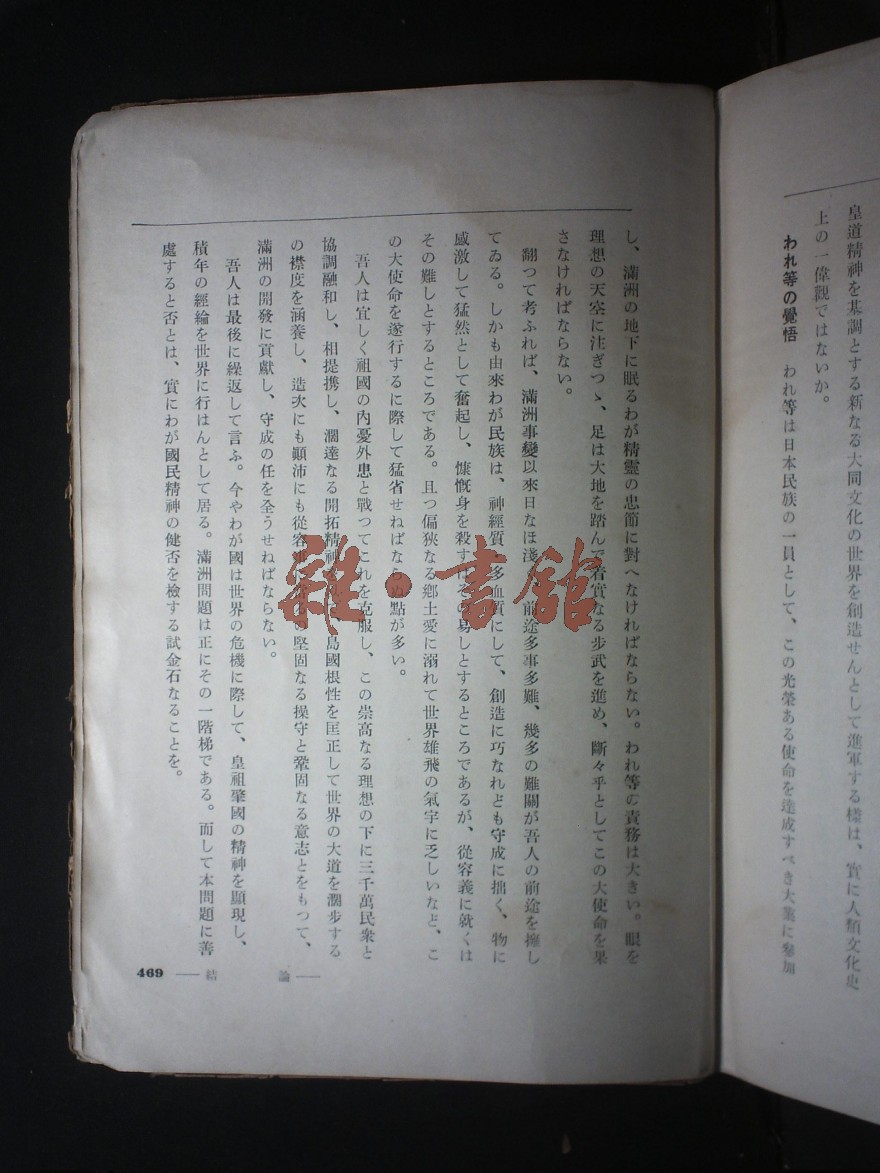 皇道精神を基調とする新なる大同文化の世界を創造せんとして進軍する樣は、實に人類文化史
上の一偉觀ではないか。
われ等の覺悟 われ等は日本民族の一員として、この光榮ある使命を達成すべき大業に參加
し、滿洲の地下に眠るわが精靈の忠節に對へなければならない。われ等の責務は大きい。眼を
理想の天空に注ぎつゝ、足は大地を踏んで着實なる步武を進め、斷々乎としてこの大使命を果
さなければならない。
翻つて考ふれば、滿洲事變以來日なほ淺く、前途多事多難、幾多の難關が吾人の前途を擁し
てゐる。しかも由來わが民族は、神經質、多血質にして、創造に巧なれども守成に拙く、物に
感激して猛然として奮起し、慷慨身を殺すはその易しとするところであるが、從容義に就くは
その難しとするところである。且つ偏狹なる鄕土愛に溺れて世界雄飛の氣宇に乏しいなど、こ
の大使命を遂行するに際して猛省せねばならぬ點が多い。
吾人は宜しく祖國の內憂外患と戰つてこれを克服し、この崇高なる理想の下に三千萬民衆と
協調融和し、相提携し、濶達なる開拓精神 島國根性を匡正して世界の大道を濶步する
の襟度を涵養し、造次にも顚沛にも從容 の堅固なる操守と鞏固なる意志とをもつて、
滿洲の開發に貢獻し、守成の任を全うせねばならない。
吾人は最後に繰返して言ふ。今やわが國は世界の危機に際して、皇祖肇國の精神を顯現し、
積年の經綸を世界に行はんとして居る。滿洲問題は正にその一階梯である。而して本問題に善
處すると否とは、實にわが國民精神の健否を檢する試金石なることを。
469 ── 結 論 ──
雜·書館